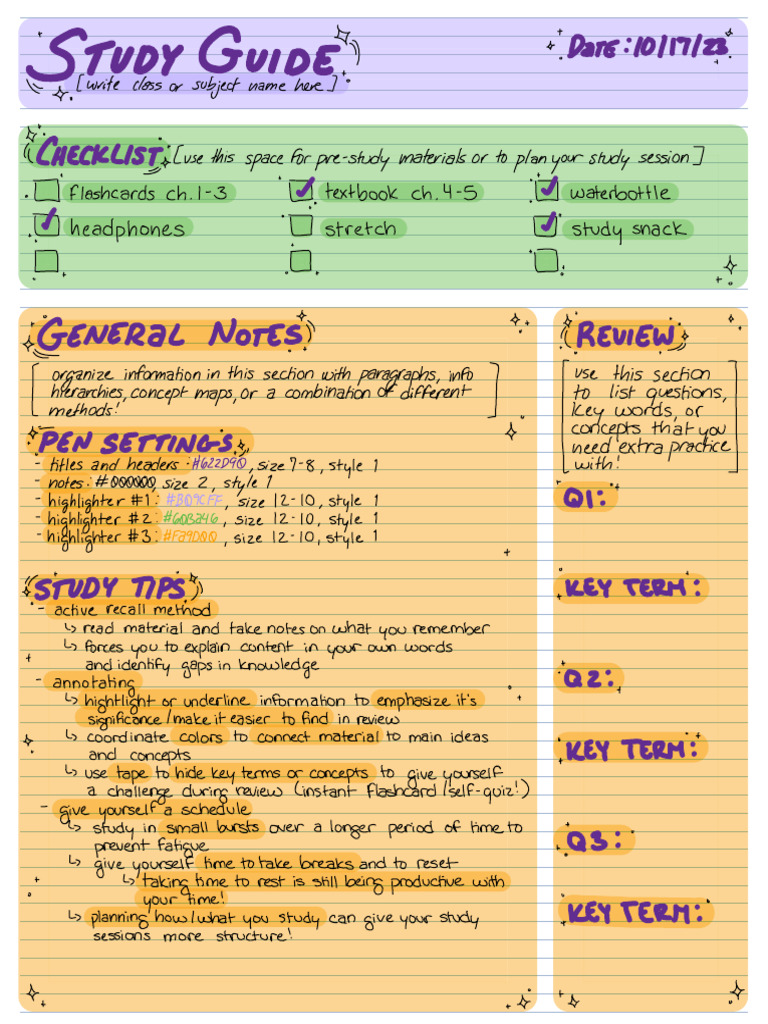 STUDY GUIDE
DATE: 10/17/23
[write class or subject name here]
CHECKLIST [use this space for pre-study materials or to plan your study session]
flashcards ch. 1-3
textbook ch. 4-5
waterbottle
headphones
stretch
study snack
GENERAL NOTES
[organize information in this section with paragraphs, info
hierarchies, concept maps, or a combination of different
methods!]
PEN SETTINGS
- titles and headers: #622D90, size 7-8, style 1
- notes: #000000 size 2, style 1
- highlighter #1: #B09CFF, size 12-10, style 1
- highlighter #2: #6DB246, size 12-10, style 1
- highlighter #3: #FA9D00, size 12-10, style 1
STUDY TIPS
- active recall method
↳ read material and take notes on what you remember
↳ forces you to explain content in your own words
and identify gaps in knowledge
- annotating
↳ hightlight or underline information to emphasize it's
significance/make it easier to find in review
↳ coordinate colors to connect material to main ideas
and concepts
↳ use tape to hide key terms or concepts to give yourself
a challenge during review (instant flashcard/self-quiz!)
- give yourself a schedule
↳ study in small bursts over a longer period of time to
prevent fatigue
↳ give yourself time to take breaks and to reset
↳ taking time to rest is still being productive with
your time!
↳ planning how/what you study can give your study
sessions more structure!
REVIEW
[use this section
to list questions,
key words, or
concepts that you
need extra practice
with!]
Q1:
KEY TERM:
Q2:
KEY TERM:
Q3:
KEY TERM: